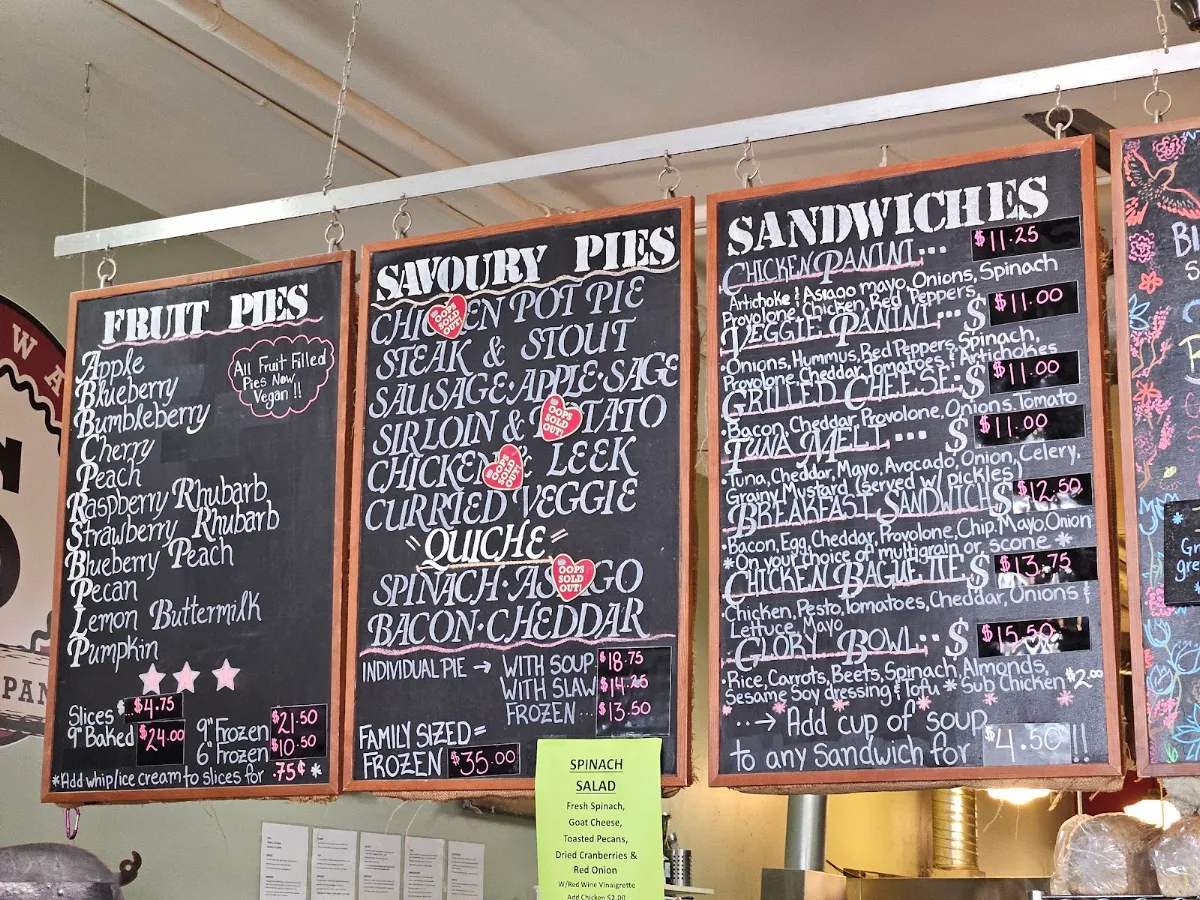 FRUIT PIES
All Fruit Filled
Pies Now
Vegan !!
Apple
Blueberry
Bumbleberry
Cherry
Peach
Raspberry Rhubarb
Strawberry Rhubarb
Blueberry Peach
Pecan
Lemon Buttermilk
Pumpkin
Slices $4.75
9" Baked $24.00
9" Frozen $21.50
6" Frozen $10.50
*Add whip/ice cream to slices for .75¢ *
SAVOURY PIES
CHICKEN POT PIE
OOPS SOLD OUT!
STEAK & STOUT
SAUSAGE·APPLE·SAGE
SIRLOIN & POTATO
OOPS SOLD OUT!
CHICKEN & LEEK
OOPS SOLD OUT!
CURRIED VEGGIE
"QUICHE"
SPINACH·ASIAGO
OOPS SOLD OUT!
BACON·CHEDDAR
INDIVIDUAL PIE → WITH SOUP $18.75
WITH SLAW $14.25
FROZEN... $13.50
FAMILY SIZED =
FROZEN $35.00
SPINACH
SALAD
Fresh Spinach,
Goat Cheese,
Toasted Pecans,
Dried Cranberries &
Red Onion
W/Red Wine Vinaigrette
Add Chicken $2.00
SANDWICHES
CHICKEN PANINI... $11.25
Artichoke & Asiago mayo, Onions, Spinach
Provolone, Chicken, Red Peppers,
VEGGIE PANINI... $ $11.00
·Onions, Hummus, Red Peppers, Spinach,
Provolone, Cheddar, Tomatoes & Artichokes
GRILLED CHEESE: $ $11.00
·Bacon, Cheddar, Provolone, Onions, Tomato
TUNA MELT... $ $11.00
·Tuna, Cheddar, Mayo, Avocado, Onion, Celery,
Grainy Mustard (served w/ pickles)
BREAKFAST SANDWICH $ $12.50
·Bacon, Egg, Cheddar, Provolone, Chip. Mayo, Onion
*On your choice of multigrain or scone *
CHICKEN BAGUETTE $ $13.75
Chicken, Pesto, Tomatoes, Cheddar, Onions &
Lettuce, Mayo
GLORY BOWL:: $ $15.50
·Rice, Carrots, Beets, Spinach, Almonds,
Sesame Soy dressing & Tofu * Sub Chicken $2.00
→ Add cup of soup
to any sandwich for $4.50 !!